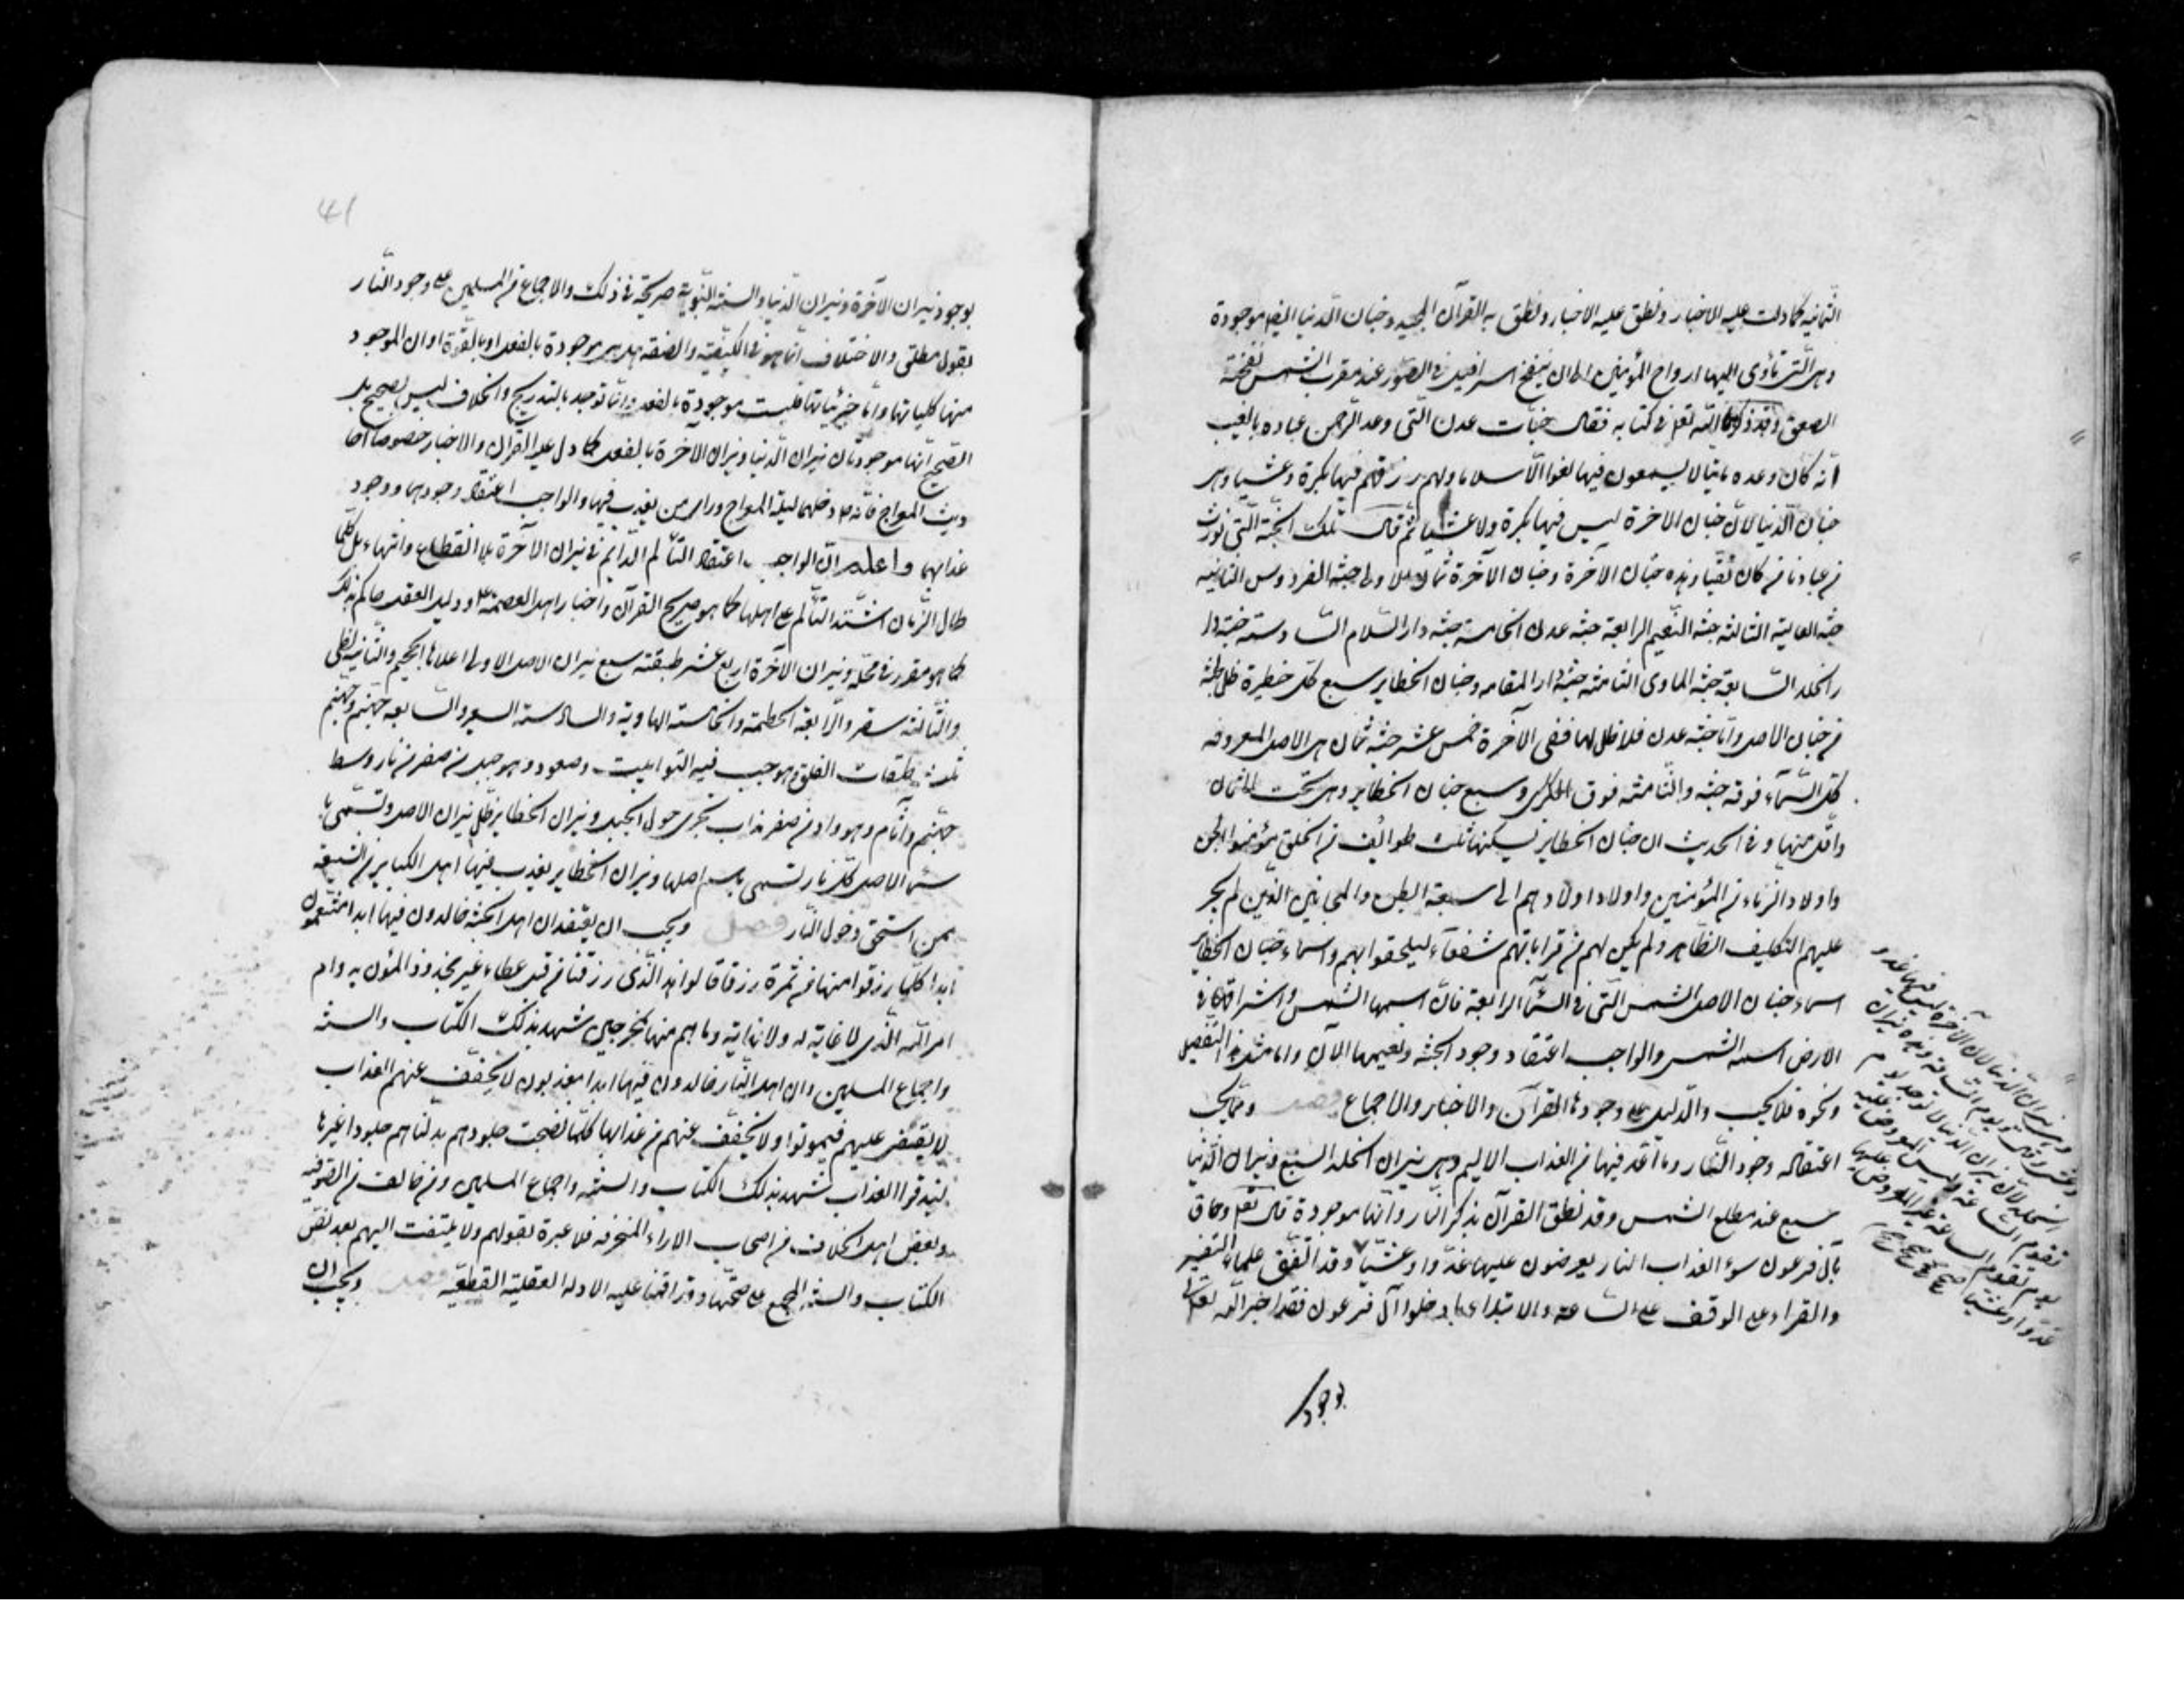 الثمانيه كما دلت عليه الاخبار ونطق عليه الاخبار ونطق به القرآن المجيد وجنان الدنيا ايضا موجودة
وهى الّتى تأوى اليها ارواح المؤمنين الى ان ينفخ اسرافيل فى الصّور عند مغرب الشمس نفخة
الصعق وقد ذكرها اللّه تعالى فى كتابه فقال جنّات عدن الّتى وعد الرّحمن عباده بالغيب
انّه كان وعده مأتيا لا يسمعون فيها لغوا الّا سلاما ولهم رزقهم فيها بكرة وعشيّا وهى
جنان الدّنيا لانّ جنان الاخرة ليس فيها بكرة ولا عشيّا ثم قال تلك الجنّة الّتى نورث
من عبادنا من كان تقيّا وهذه جنان الآخرة وجنان الآخرة ثمان الاولى جنّة الفردوس الثانيه
جنّة العالية الثالثة جنّة النّعيم الرابعة جنّة عدن الخامسة جنّة دار السّلام السّادسة جنّة دا
ر الخلد السّابعة جنّة الماوى الثامنة جنّة دار المقامه وجنان الحظاير سبع كلّ حظيرة ظل جنّة
من جنان الاصل وامّا جنّة عدن فلا ظلّ لها ففى الآخرة خمس عشر جنّة ثمان هى الاصل المعروفه
كلّ السّمآء فوقه جنّة والثّامنة فوق الكرسى وسبع جنان الحظاير وهى تحت الثمان
واقلّ منها وفى الحديث ان جنان الحظاير يسكنها ثلث طوائف من الخلق مؤمنوا الجن
واولاد الزناء من المؤمنين واولاد اولادهم الى سبعة ابطن والمجانين الذين لم يجر
عليهم التكليف الظّاهر ولم يكن لهم من قراباتهم شفعآء ليلحقوا بهم واسماء جنان الحظاير
اسماء جنان الاصل الشمس الّتى فى السّمآ الرابعة فانّ اسمها الشمس واشراقها فى
الارض اسمه الشمس والواجب اعتقاد وجود الجنّة ونعيمها الآن وامّا مثل هذا التفصيل
ونحوه فلا يجب والدّليل على وجودها القرآن والاخبار والاجماع فصل وممّا يجب
اعتقاده وجود النّار وما اعّد فيها من العذاب الاليم وهى نيران الخلد السبع ونيران الدّنيا
سبع عند مطلع الشمس وقد نطق القرآن بذكر النّار وانّها موجودة قال تعالى وحاق
بآل فرعون سوء العذاب النار يعرضون عليها غدّوا وعشيّا وقد اتّفق علماء التفسير
والقراء على الوقف على السّاعة والابتداء بادخلوا آل فرعون فقد اخبر اللّه تعالى
وهى نيران الدّنيا لانّ الآخرة ليس فيها غدو
يوم تقوم الساعة
غدّوا وعشيّا صح صح صح
بوجود
41
بوجود نيران الآخرة ونيران الدّنيا والسنة النّبوية صريحة فى ذلك والاجماع من المسلمين على وجود النّار
بقول مطلق والاختلاف انّما هو فى الكيفيّة والصّفة هل هى موجودة بالفعل او بالقّوة او ان الموجود
منها كلّياتها وامّا جزئيّاتها فليست موجودة بالفعل وانّما توجد بالتدريج والخلاف ليس بصحيح بل
الصّحيح انّهما موجودتان نيران الدّنيا ونيران الآخرة بالفعل كما دل عليه القرآن والاخبار خصوصا احا
ديث المعراج فانّه ص دخلهما ليلة المعراج وراى من يعذب فيها والواجب اعتقاد وجودهما ووجود
عذابهما واعلم انّ الواجب اعتقاد التألّم الدّايم فى نيران الآخرة بلا انقطاع وانتهاء بل كلّما
طال الزّمان اشتدّ التّألّم على اهلها كما هو صريح القرآن واخبار اهل العصمة ع ودليل العقل حاكم بذلك
كما هو مقرر فى محلّه ونيران الآخرة اربع عشر طبقة سبع نيران الاصل الاولى اعلاها الجحيم والثّانية لظى
والثّالثة سقر والرّابعة الحطمة والخامسة الهاوية والسادسة السعير والسابعه جهنّم وجهنّم
ثلث طبقات الفلق وهو جب فيه التوابيت وصعود وهو جبل من صفر من نار وسط
جهنّم وآثام وهو واد من صفر مذاب تجرى حول الجبل ونيران الحظاير ظلّ نيران الاصل وتسمّى با
سم الاصل كلّ نار تسمى باسم اصلها ونيران الحظاير يعذب فيها اهل الكباير من الشيعة
ممن استحق دخول النّار فصل ويجب ان يعتقد ان اهل الجنّة خالدون فيها ابدا متنعمون
ابدا كلّما رزقوا منها من ثمرة رزقا قالوا هذا الّذى رزقنا من قبل عطاء غير مجذوذ المؤن به وام
امر اللّه الّذى لا غاية له ولا نهاية وما هم منها بمخرجين شهد بذلك الكتاب والسنّة
واجماع المسلمين وان اهل النّار خالدون فيها ابدا معذبون لا يخفّف عنهم العذاب
لا يقضى عليهم فيموتوا ولا يخفّف عنهم من عذابها كلّما نضجت جلودهم بدلناهم جلودا غيرها
ليذوقوا العذاب شهد بذلك الكتاب والسنّة واجماع المسلمين ومن خالف من الصّوفيّة
وبعض اهل الخلاف من اصحاب الاراء المنحرفه فلا عبرة بقولهم ولا يلتفت اليهم بعد نصّ
الكتاب والسنّة المجمع على صحّتها وقد اقمنا عليه الادلّة العقلية القطعيّه فصل ويجب ان